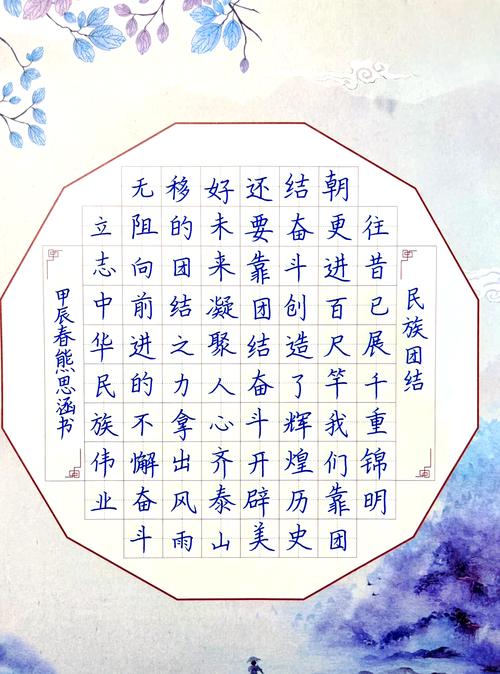 民族团结
往昔已展千重锦明
朝更进百尺竿我们靠团
结奋斗创造了辉煌历史
还要靠团结奋斗开辟美
好未来凝聚人心齐泰山
移的团结之力拿出风雨
无阻向前进的不懈奋斗
立志中华民族伟业
甲辰春熊思涵书